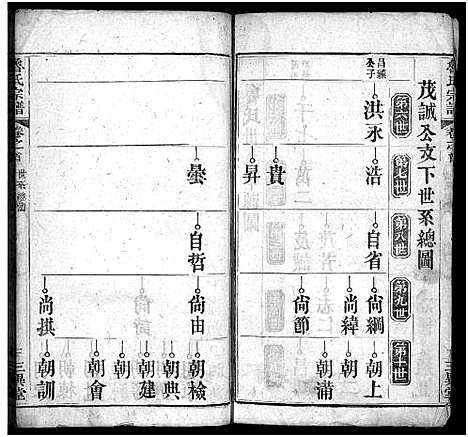 魯氏宗譜
卷之首
三異堂
茂誠公支下世系總圖
第六世
第七世
第八世
第九世
第十世
昌續公子
洪永
浩
貴
昇
自省
尚綱
尚緯
尚節
朝上
朝滿
曇
自哲
尚由
尚拱
朝檢
朝典
朝建
朝
朝會
朝訓
魯氏宗譜
卷之首
世系總圖
三異堂